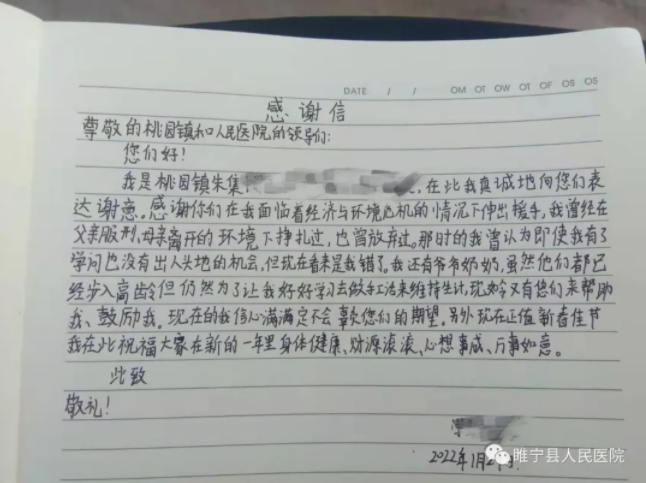 DATE / / OM OT OW OT OF OS OS
感谢信
尊敬的桃园镇和人民医院的领导们:
您们好!
我是桃园镇朱集 ,在此我真诚地向您们表
达谢意。感谢你们在我面临着经济与环境危机的情况下伸出援手,我曾经在
父亲服刑、母亲离开的环境下挣扎过,也曾放弃过。那时的我曾认为即使我有了
学问也没有出人头地的机会,但现在看来是我错了。我还有爷爷奶奶,虽然他们都已
经步入高龄但仍然为了让我好好学习去做手工活来维持生计,现如今又有您们来帮助
我、鼓励我。现在的我信心满满定不会辜负您们的期望。另外现在正值新春佳节
我在此祝福大家在新的一年里身体健康、财源滚滚、心想事成、万事如意。
此致
敬礼!
2022年1月2
睢宁县人民医院